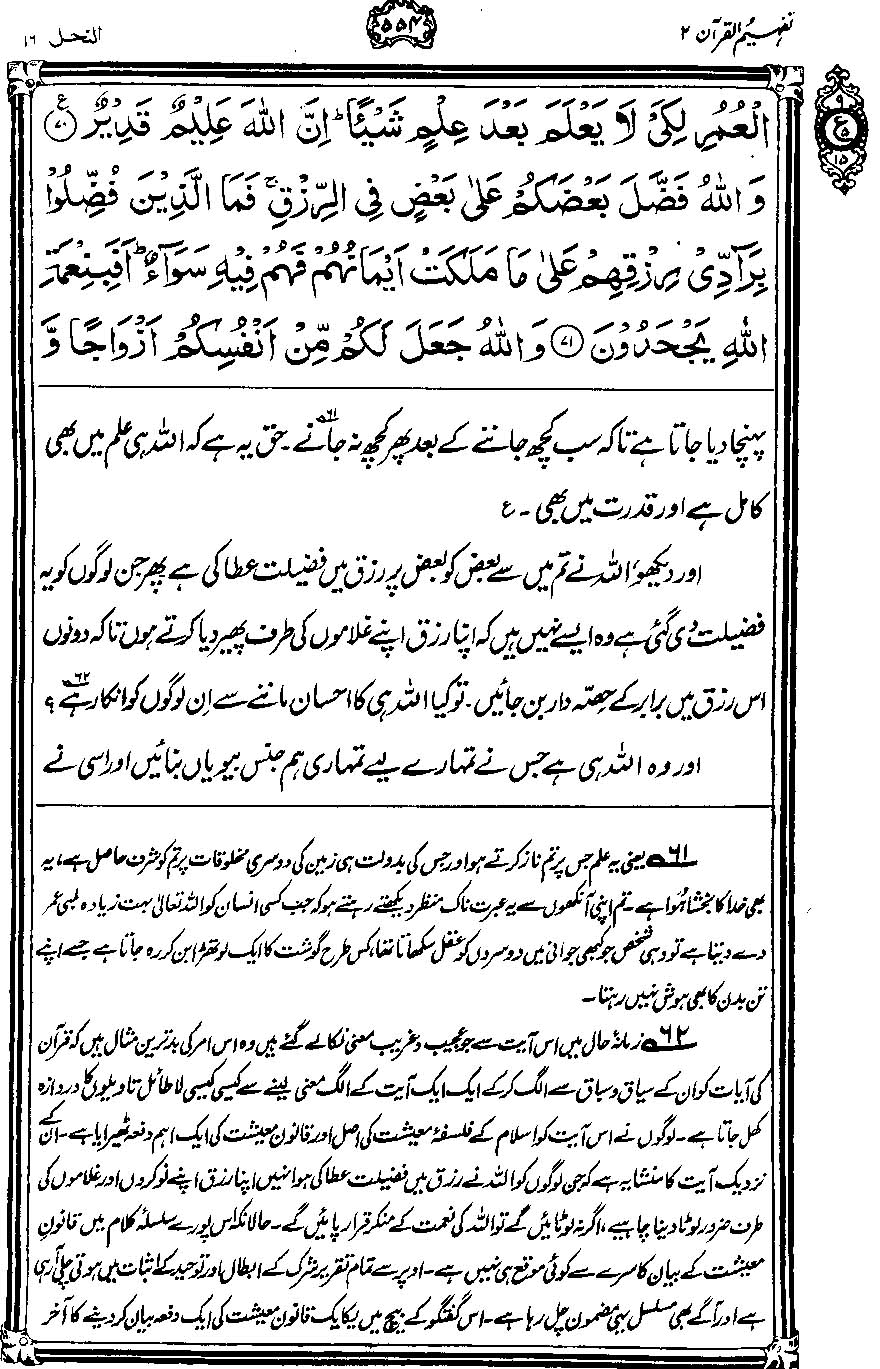 تفہیم القرآن ۲
۵۵۴
النحل ۱۶
۹
ع
۵
۱۵
الْعُمُرِ لِكَیْ لَا يَعْلَمَ بَعْدَ عِلْمٍ شَيْئًا ؕ اِنَّ اللّٰهَ عَلِيْمٌ قَدِيْرٌ ﴿۷۰﴾ ع
وَاللّٰهُ فَضَّلَ بَعْضَكُمْ عَلٰى بَعْضٍ فِى الرِّزْقِ ۚ فَمَا الَّذِيْنَ فُضِّلُوْا
بِرَآدِّیْ رِزْقِهِمْ عَلٰى مَا مَلَكَتْ اَيْمَانُهُمْ فَهُمْ فِيْهِ سَوَآءٌ ؕ اَفَبِنِعْمَةِ
اللّٰهِ يَجْحَدُوْنَ ﴿۷۱﴾ وَاللّٰهُ جَعَلَ لَكُمْ مِّنْ اَنْفُسِكُمْ اَزْوَاجًا وَّ
پہنچا دیا جاتا ہے تاکہ سب کچھ جاننے کے بعد پھر کچھ نہ جانے۔ ۶۱ حق یہ ہے کہ اللہ ہی علم میں بھی
کامل ہے اور قدرت میں بھی۔ ع
اور دیکھو، اللہ نے تم میں سے بعض کو بعض پر رزق میں فضیلت عطا کی ہے پھر جن لوگوں کو یہ
فضیلت دی گئی ہے وہ ایسے نہیں ہیں کہ اپنا رزق اپنے غلاموں کی طرف پھیر دیا کرتے ہوں تاکہ دونوں
اس رزق میں برابر کے حصّہ دار بن جائیں۔ تو کیا اللہ ہی کا احسان ماننے سے اِن لوگوں کو انکار ہے ۶۲؟
اور وہ اللہ ہی ہے جس نے تمہارے لیے تمہاری ہم جنس بیویاں بنائیں اور اسی نے
۶۱ یعنی یہ علم جس پر تم ناز کرتے ہو اور جس کی بدولت ہی زمین کی دوسری مخلوقات پر تم کو شرف حاصل ہے، یہ
بھی خدا کا بخشا ہُوا ہے۔ تم اپنی آنکھوں سے یہ عبرت ناک منظر دیکھتے رہتے ہو کہ جب کسی انسان کو اللہ تعالیٰ بہت زیادہ لمبی عمر
دے دیتا ہے تو وہی شخص جو کبھی جوانی میں دوسروں کو عقل سکھاتا تھا، کس طرح گوشت کا ایک لوتھڑا بن کر رہ جاتا ہے جسے اپنے
تن بدن کا بھی ہوش نہیں رہتا۔
۶۲ زمانۂ حال میں اس آیت سے جو عجیب و غریب معنی نکالے گئے ہیں وہ اس امر کی بدترین مثال ہیں کہ قرآن
کی آیات کو ان کے سیاق و سباق سے الگ کر کے ایک ایک آیت کے الگ معنی لینے سے کیسی کیسی لاطائل تاویلوں کا دروازہ
کھل جاتا ہے۔ لوگوں نے اس آیت کو اسلام کے فلسفۂ معیشت کی اصل اور قانونِ معیشت کی ایک اہم دفعہ ٹھیرایا ہے۔ اُن کے
نزدیک آیت کا منشا یہ ہے کہ جن لوگوں کو اللہ نے رزق میں فضیلت عطا کی ہو انہیں اپنا رزق اپنے نوکروں اور غلاموں کی
طرف ضرور لوٹا دینا چاہیے، اگر نہ لوٹائیں گے تو اللہ کی نعمت کے منکر قرار پائیں گے۔ حالانکہ اس پورے سلسلۂ کلام میں قانونِ
معیشت کے بیان کا سرے سے کوئی موقع ہی نہیں ہے۔ اوپر سے تمام تقریر شرک کے ابطال اور توحید کے اثبات میں ہوتی چلی آ رہی
ہے اور آگے بھی مسلسل یہی مضمون چل رہا ہے۔ اس گفتگو کے بیچ میں یکایک قانونِ معیشت کی ایک دفعہ بیان کر دینے کا آخر